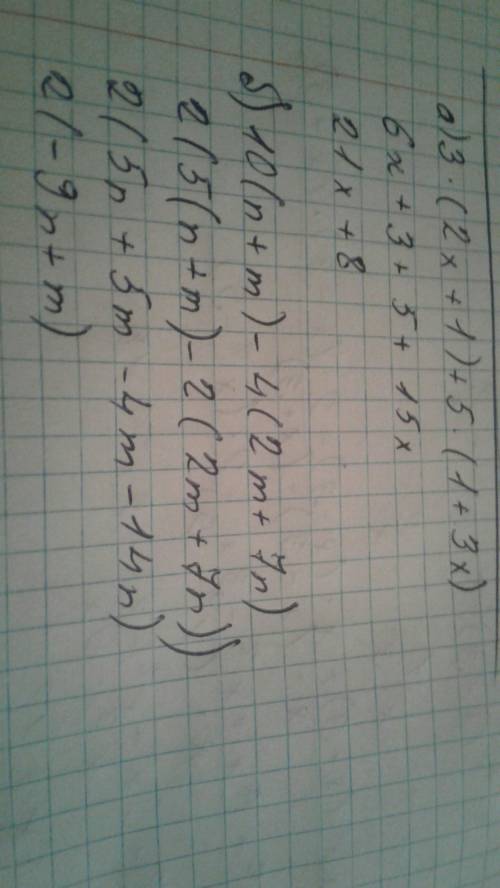 а) 3 · (2x + 1) + 5 · (1 + 3x)
6x + 3 + 5 + 15x
21x + 8
б) 10(n + m) - 4(2m + 7n)
2(5(n + m) - 2(2m + 7n))
2(5n + 5m - 4m - 14n)
2(-9n + m)